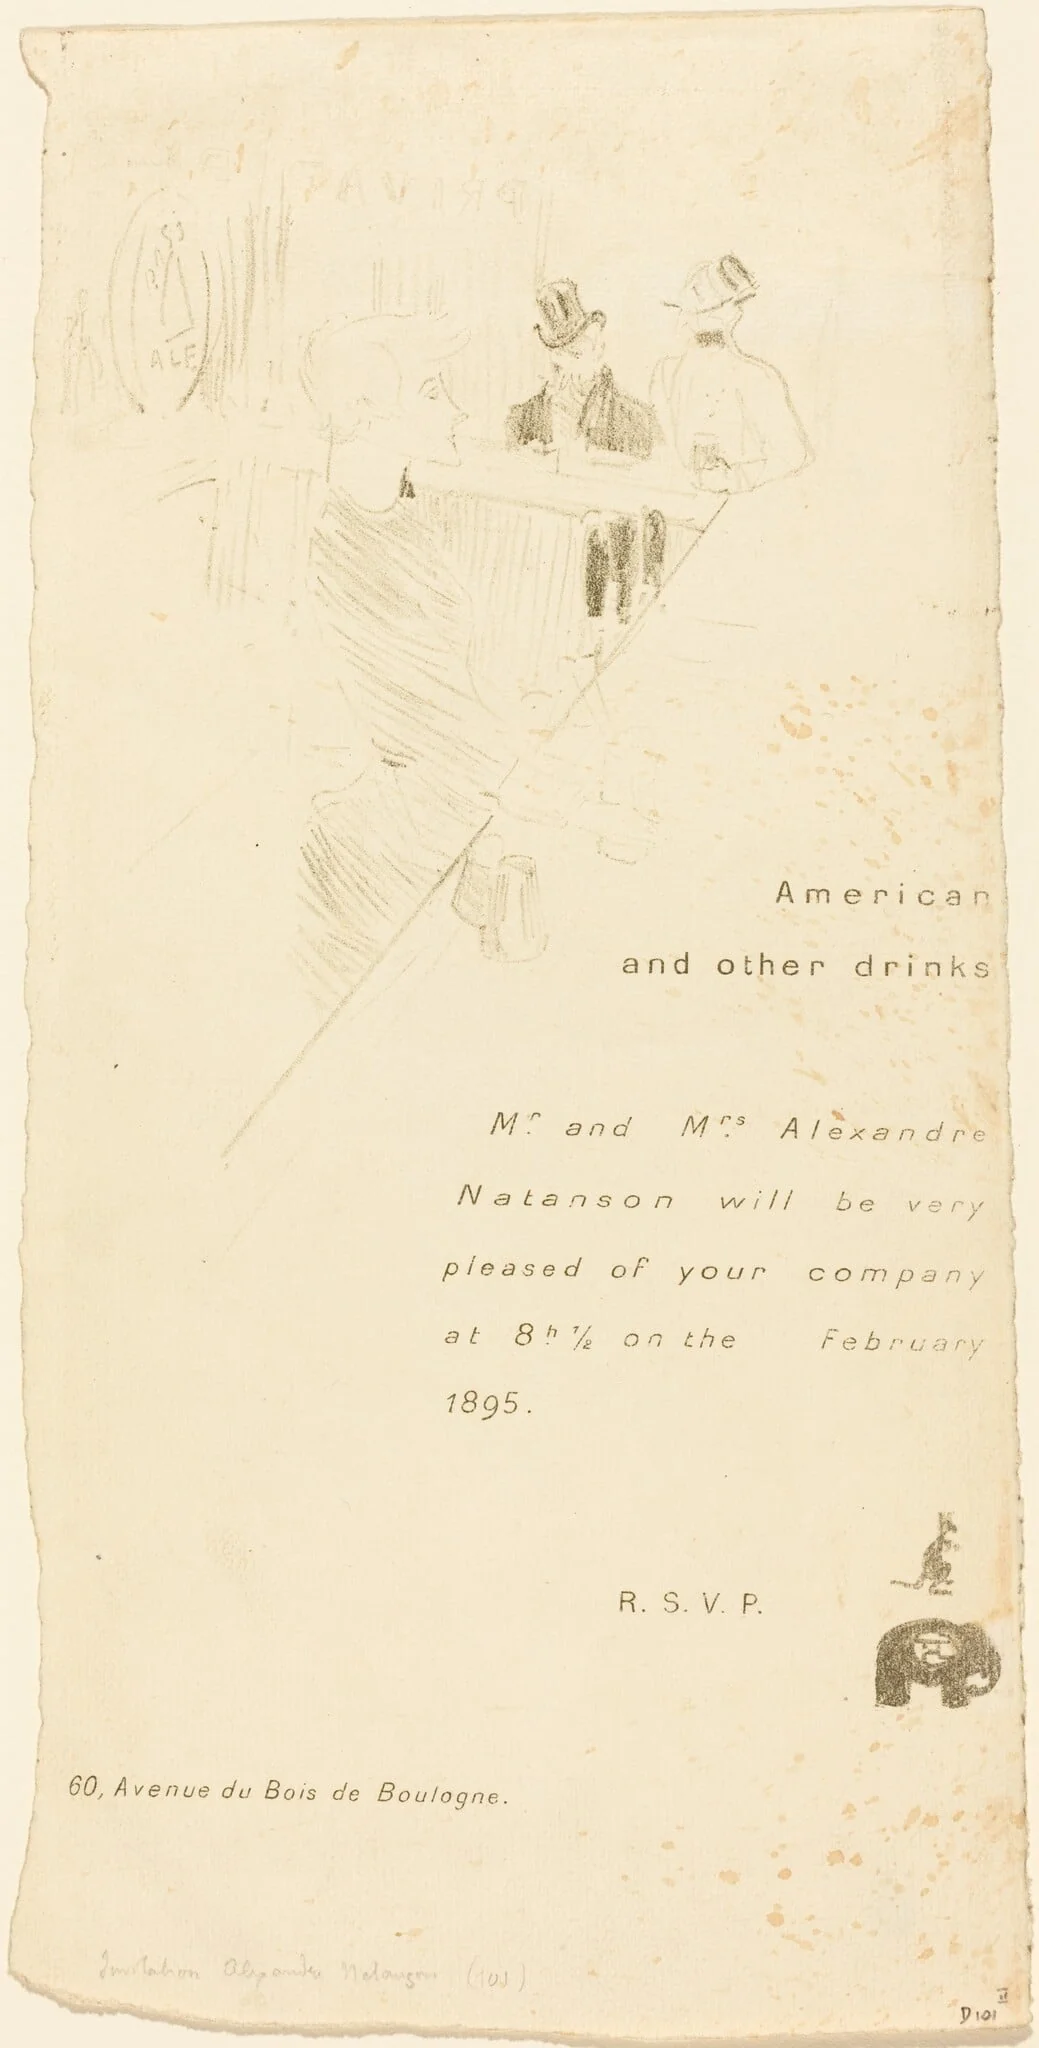 PRIVAT
ALE
American
and other drinks
Mr. and Mrs. Alexandre
Natanson will be very
pleased of your company
at 8h. 1/2 on the February
1895.
R. S. V. P.
60, Avenue du Bois de Boulogne.
Invitation Alexandre Natanson (101)
D 101 II